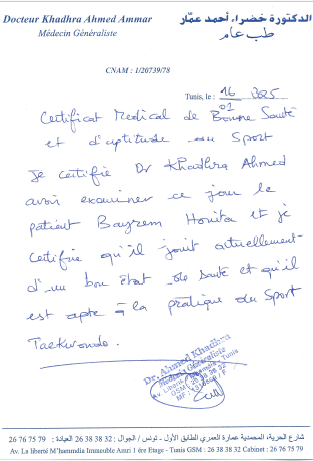 Docteur Khadhra Ahmed Ammar
Médecin Généraliste
الدكتورة خضراء أحمد عمّار
طب عام
CNAM : 1/20739/78
Tunis, le : 16
01
Certificat Medical de Bonne Santé
et d'aptitude au Sport
Je certifie Dr Khadhra Ahmed
avoir examiner ce jour le
patient Bayrem et je
certifie qu'il jouit actuellement
d'un bon état de santé et qu'il
est apte à la pratique du Sport
Taekwondo.
Dr. Ahmed Khadhra
Médecin Généraliste
GSM : 26 38 38 32
شارع الحرية، المحمدية عمارة العمري الطابق الأول - تونس / الجوال : 32 38 38 26 العيادة : 79 75 76 26
Av. La liberté M'hammdia Immeuble Amri 1 ére Etage - Tunis GSM : 26 38 38 32 Cabinet : 26 76 75 79